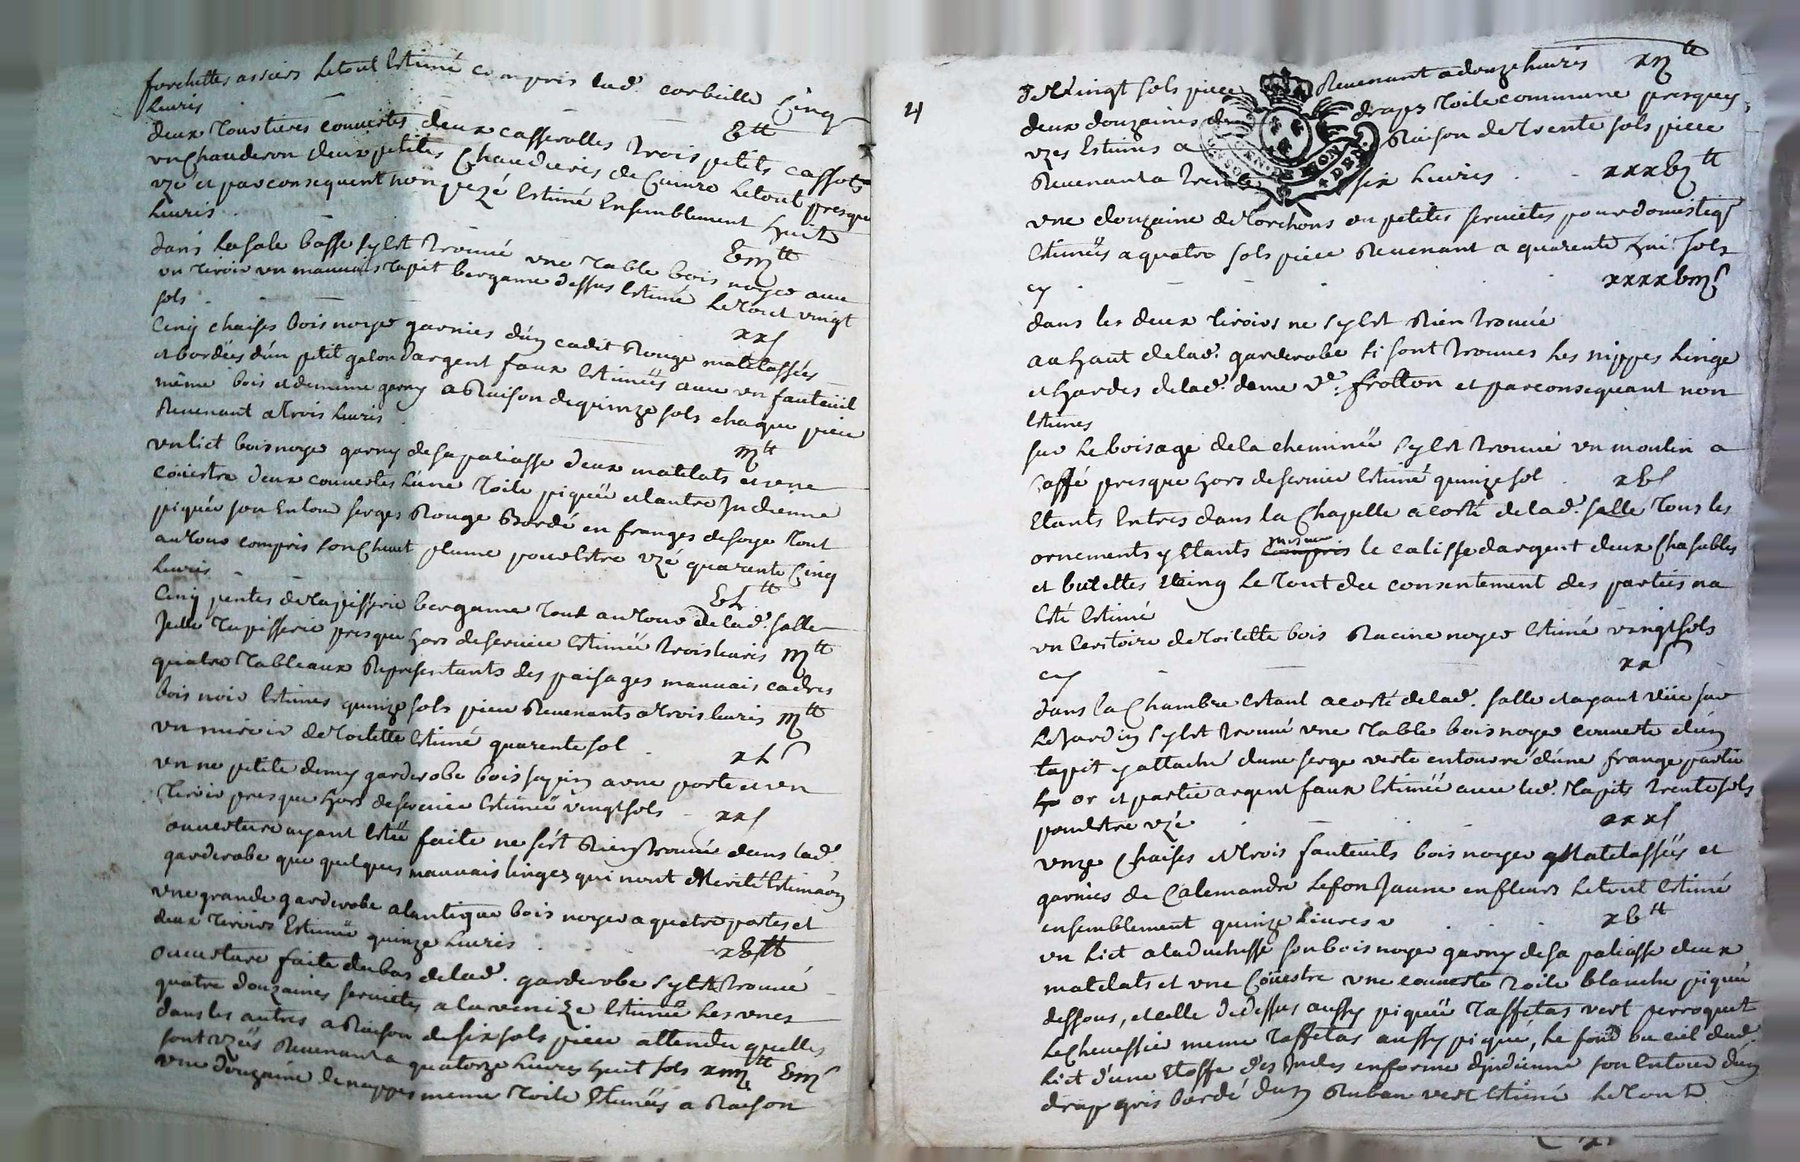 forchettes assiers Letout Estimé compris lad. corbeille Cinq
Livres
Vtt
deux Tourtieres couvertes deux casserolles trois petits cassots
un Chauderon deux petites Chaudieres de Cuivre Letout presque
uzé et par consequent non pezé Estimé Ensemblement huit
Livres
Viijtt
dans La sale basse sy Est trouvé une Table bois noyer avec
un tiroir un mauvais tapit bergame dessus Estimé Le tout vingt
sols
xxs
Cinq chaises bois noyer garnies d'un cadit Rouge matelassées
et bordées d'un petit galon d'argent faux Estimées avec un fauteuil
même bois et de meme garny a Raison de quinze sols chaque piece
Revenant a trois Livres
iijtt
un lict bois noyer garny de sa paliasse deux matelats et une
Couestre deux couvertes L'une Toile piquée et Lautre Indienne
piquée son Entour serges Rouge Bordé en franges de soye tout
autour compris son Chevet plume pour Estre uzé quarente Cinq
Livres
VLtt
Cinq pentes de tapisserie bergame tout autour de lad. salle
Jelle Tapisserie presque hors de service Estimée trois livres iijtt
quatre Tableaux Representants des paisages mauvais cadres
bois noir Estimes quinze sols piece Revenants a trois Livres iijtt
un miroir de toilette Estimé quarente sol
xLs
un ne petite demy garderobe bois sapin avne porte et un
tiroir presque hors de service Estimée vingt sols xxs
ouverture ayant Esté faite ne s'est Rien trouvé dans lad.
garderobe que quelques mauvais linges qui n'ont Merité Estimaon
une grande garderobe a lantique bois noyer a quatre portes et
deux Tiroirs Estimée quinze Livres
xVtt
ouverture faite du bas de lad. garderobe sy Est trouvé
quatre douzaines serviettes a la venize Estimée Les unes
dans les autres a Raison de six sols piece attendu quelles
sont uzées Revenant a quatorze Livres huit sols xiiijtt Viijs
une douzaine de nappes meme Toile Estimées a Raison
4
de vingt sols piece Revenant a douze Livres xijtt
deux douzaines de draps Toile commune presques
uzes Estimes a Raison de trente sols piece
Revenant a trente six Livres xxxVjtt
une douzaine de torchons ou petites serviettes pour domestiqs
Estimées a quatre sols piece Revenant a quarente huit sols
cy
xxxxViijs
dans les deux tiroirs ne sy Est Rien trouvé
au haut de lad. garderobe si sont trouves Les nippes Linge
et hardes de lad. dame Ve. frotton et par consequant non
Estimes
sur Le boisage de la cheminée sy Est trouvé un moulin a
Caffé presque hors de service Estimé quinze sol xVs
Etants Entres dans la Chapelle a costé de lad. salle Tous les
ornements y Etants compris le calisse dargent deux Chasubles
et burettes Le tout du consentement des parties na
Esté Estimé
un Ecritoire de toilette bois Racine noyer Estimé vingt sols
cy
xxs
dans la Chambre Estant a costé de lad. salle et ayant veüe sur
Le Jardin sy Est trouvé une Table bois noyer couverte d'un
tapit y attaché d'une serge verte entouré d'une frange partie
or et partie argent faux Estimée avec led. tapits trente sols
pour Estre uzé
xxxs
unze Chaises et trois fauteuils bois noyer Matelassées et
garnies de Calemandre Le fon Jaune en fleurs Letout Estimé
ensemblement quinze Livres
xVtt
un Lict a la duchesse son bois noyer garny de sa paliasse deux
matelats et une Couestre une couverte Toile blanche piquée
dessous, et celle de dessus aussy piquée Taffetas vert perroquet
Le Chevessier meme Taffetas aussy piqué, Le fond du ciel dud.
Lict d'une Etoffe des Indes en forme d'indienne son Entour d'un
drap gris bordé d'un Ruban vert Estimé Le tout